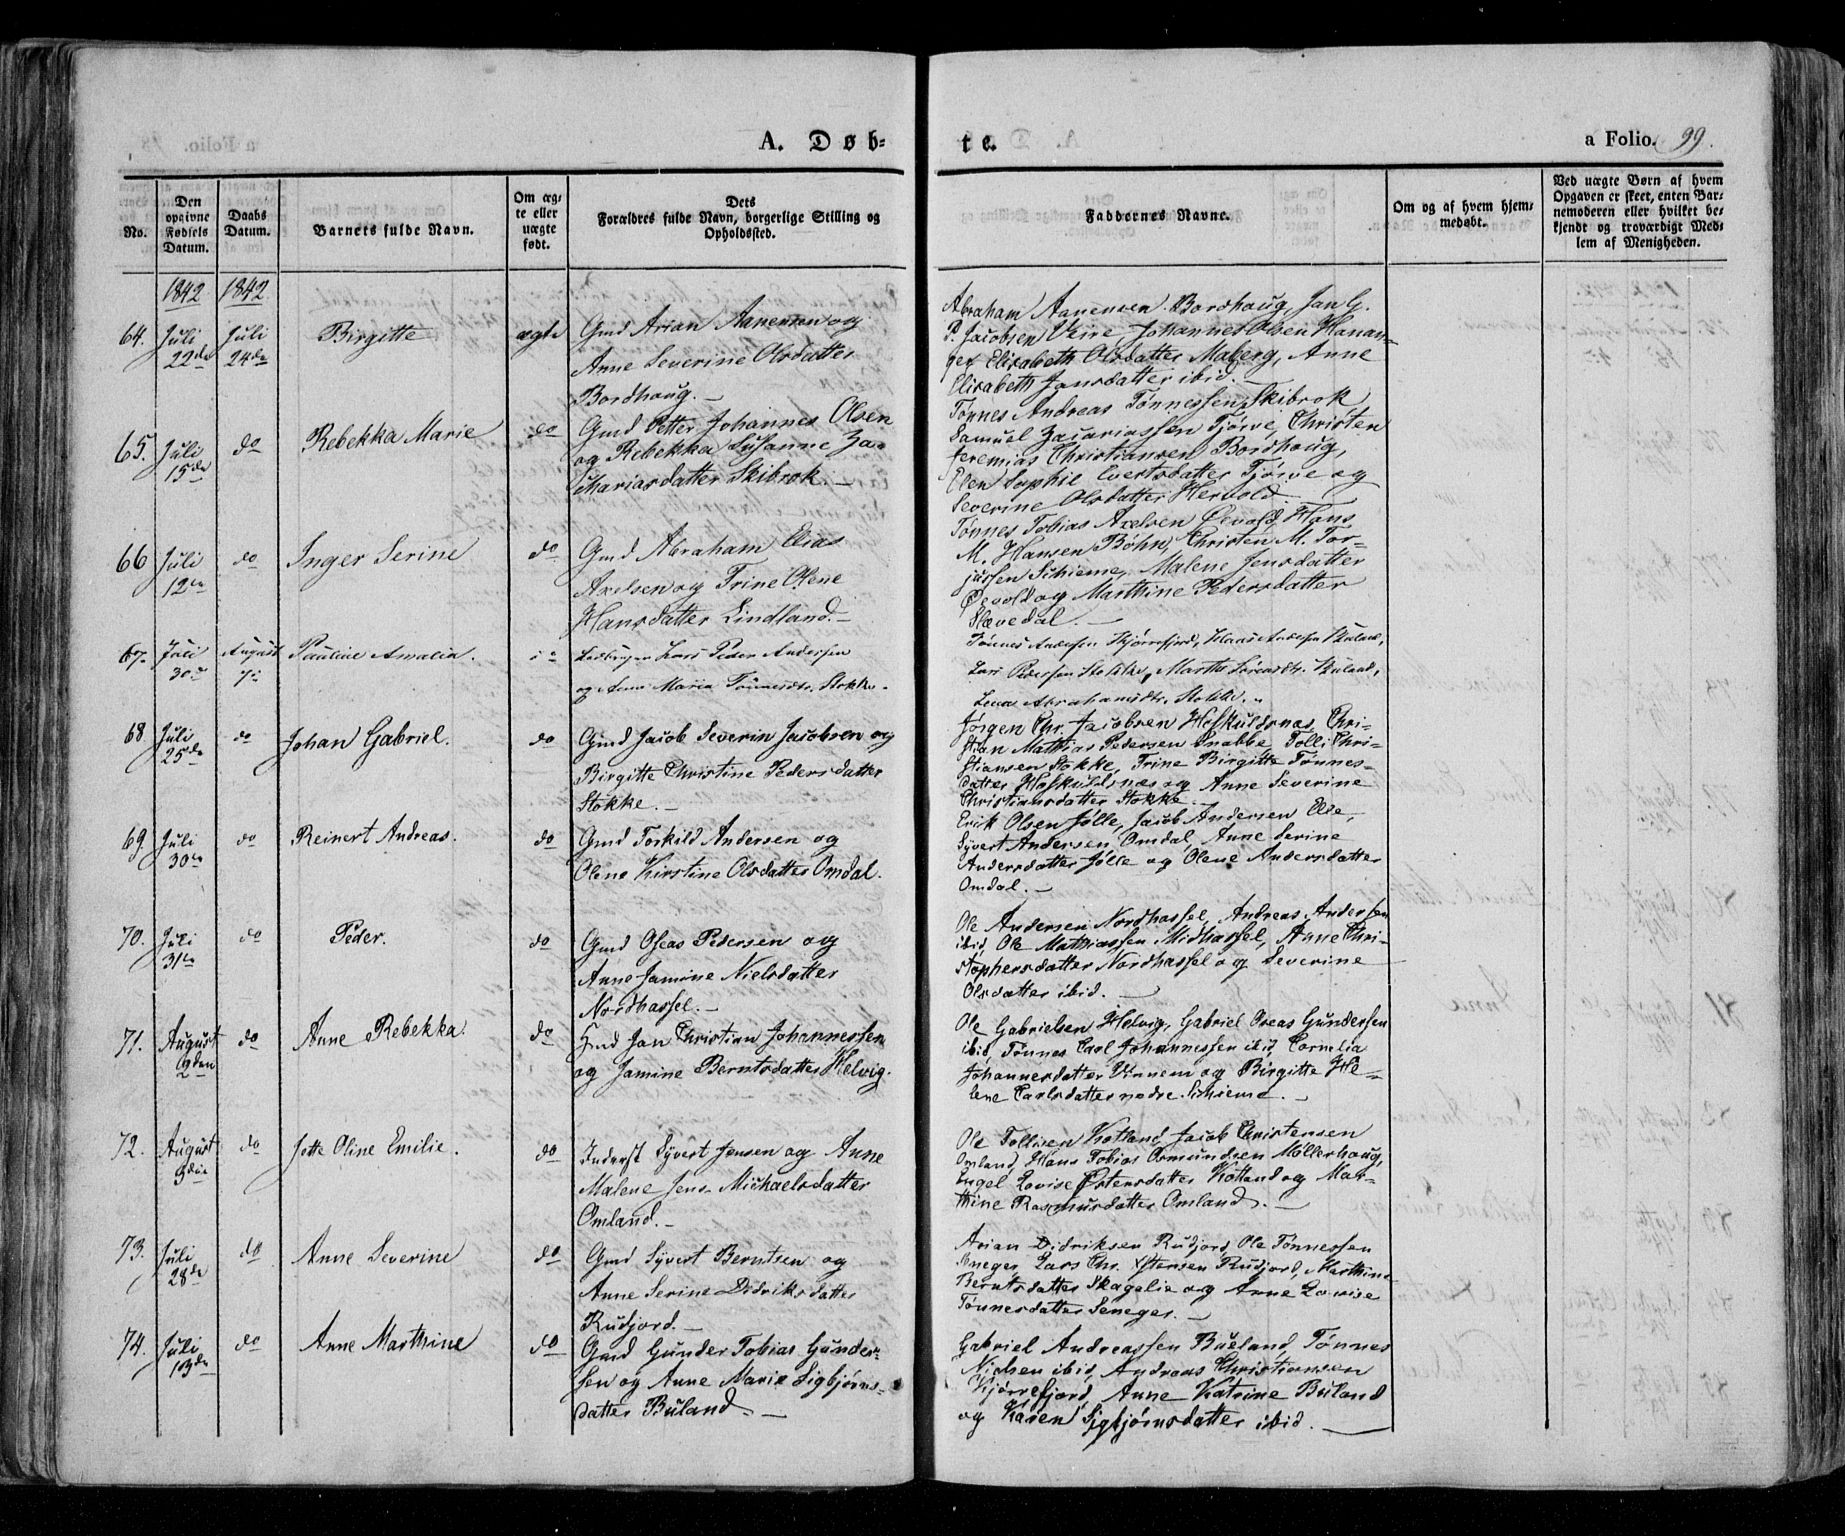 A. Døb-
te.
a Folio. 99.
No.
Den opgivne Fødsels Datum.
Daabs Datum.
Barnets fulde Navn.
Om ægte eller uægte født.
Dets Forældres fulde Navn, borgerlige Stilling og Opholdssted.
Faddernes Navne.
Om og af hvem hjemmedøbt.
Ved uægte Børn af hvem Opgaven er skeet, enten Barnemoderen eller hvilket bekjendt og troværdigt Medlem af Menigheden.
1842 1842
64. Juli 22de Juli 24de Birgitte ægte
Gmd Arian Aanensen og
Anne Severine Olsdatter
Bordhoug. —
Abraham Aanensen Bordhoug, Jan G.
P. Jacobsen Vere, Johannes Olsen Hanan-
ger Elisabeth Olsdatter Maberg, Anne
Elisabeth Jansdatter ibid. —
65. Juli 15de do Rebekka Marie do
Gmd Petter Johannes Olsen
og Rebekka Susanne Za-
chariasdatter Skibrok. —
Tønnes Andreas Tønnessen Skibrok
Samuel Zacariassen Tjørve, Christen
Jeremias Christiansen Bordhoug,
Elen Sophie Evertsdatter Tjørve og
Severine Olsdatter Hervold
66 Juli 12te do Inger Serine do
Gmd Abraham Elias
Axelsen og Trine Olene
Hansdatter Lindland. —
Tønnes Tobias Axelsen Øevold, Hans
M. Hansen Bøhn, Christen M. Tor-
jussen Schieme, Malene Jensdatter
Øevold og Marthine Pedersdatter
Slævedal. —
67. Juli 30te August 7de Pauline Amalia.
Lars Peder Andersen
og Anne Maria Tønnesdtr. Stokke.
Tønnes Andersen Kjørrefjord, Klaas Andersen Buland,
Lars Pedersen Stokke, Marthe Sørensdtr. Buland,
Lena Abrahamsdtr. Stokke.
68. Juli 25de do Johan Gabriel. do
Gmd Jacob Severin Jacobsen og
Birgitte Christine Pedersdatter
Stokke. —
Jørgen Chr. Jacobsen Høskuldsnæs, Chri-
stian Mathias Pedersen Snabbe, Tolli Chri-
stiansen Stokke, Trine Birgitte Tønnes-
datter Høskuldsnæs og Anne Severine
Christiansdatter Stokke. —
69. Juli 30te do Reinert Andreas. do
Gmd Torkild Andersen og
Olene Kirstine Olsdatter Omdal.
Erik Olsen Jølle, Jacob Andersen Else,
Syvert Andersen Omdal, Anne Serine
Andersdatter Jølle og Olene Andersdatter
Omdal. —
70. Juli 31te do Peder. do
Gmd Oseas Pedersen og
Anne Jamine Nielsdatter
Nordhassel. —
Ole Andersen Nordhassel, Andreas Andersen
ibid, Ole Mathiassen Midhassel, Anne Chri-
stophersdatter Nordhassel og Severine
Olsdatter ibid. —
71. August 2den do Anne Rebekka. do
Gmd Jan Christian Johannessen
og Jamine Berntsdatter Helvig.
Ole Gabrielsen Helvig, Gabriel Oseas Gundersen
ibid, Tønnes Carl Johannessen ibid, Cornelia
Johannesdatter Vinnem og Birgitte He-
lene Carlsdatter nedre Schieme. —
72. August 3die do Jette Oline Emilie. do
Inderst Syvert Jensen og Anne
Malene Jens Michaelsdatter
Omland. —
Ole Tollisen Kotland, Jacob Christensen
Omland, Hans Tobias Osmundsen Møllerhoug,
Engel Lovise Østensdatter Kotland og Mar-
thine Rasmusdatter Omland. —
73. Juli 28de do Anne Severine do
Gmd Syvert Berntsen og
Anne Serine Didriksdatter
Rudjord. —
Arian Didriksen Rudjord, Ole Tønnessen
Seneger, Lars Chr. Ostensen Rudjord, Marthine
Berntsdatter Skagelie og Anne Lovise
Tønnesdatter Seneger. —
74. Juli 13de do Anne Marthine do
Gmd Gunder Tobias Gunder-
sen og Anne Marie Sigbjørns-
datter Buland. —
Gabriel Andreassen Bueland, Tønnes
Nielsen ibid, Andreas Christiansen
Kjørrefjord, Anne Katrine Buland
og Karen Sigbjørnsdatter ibid. —